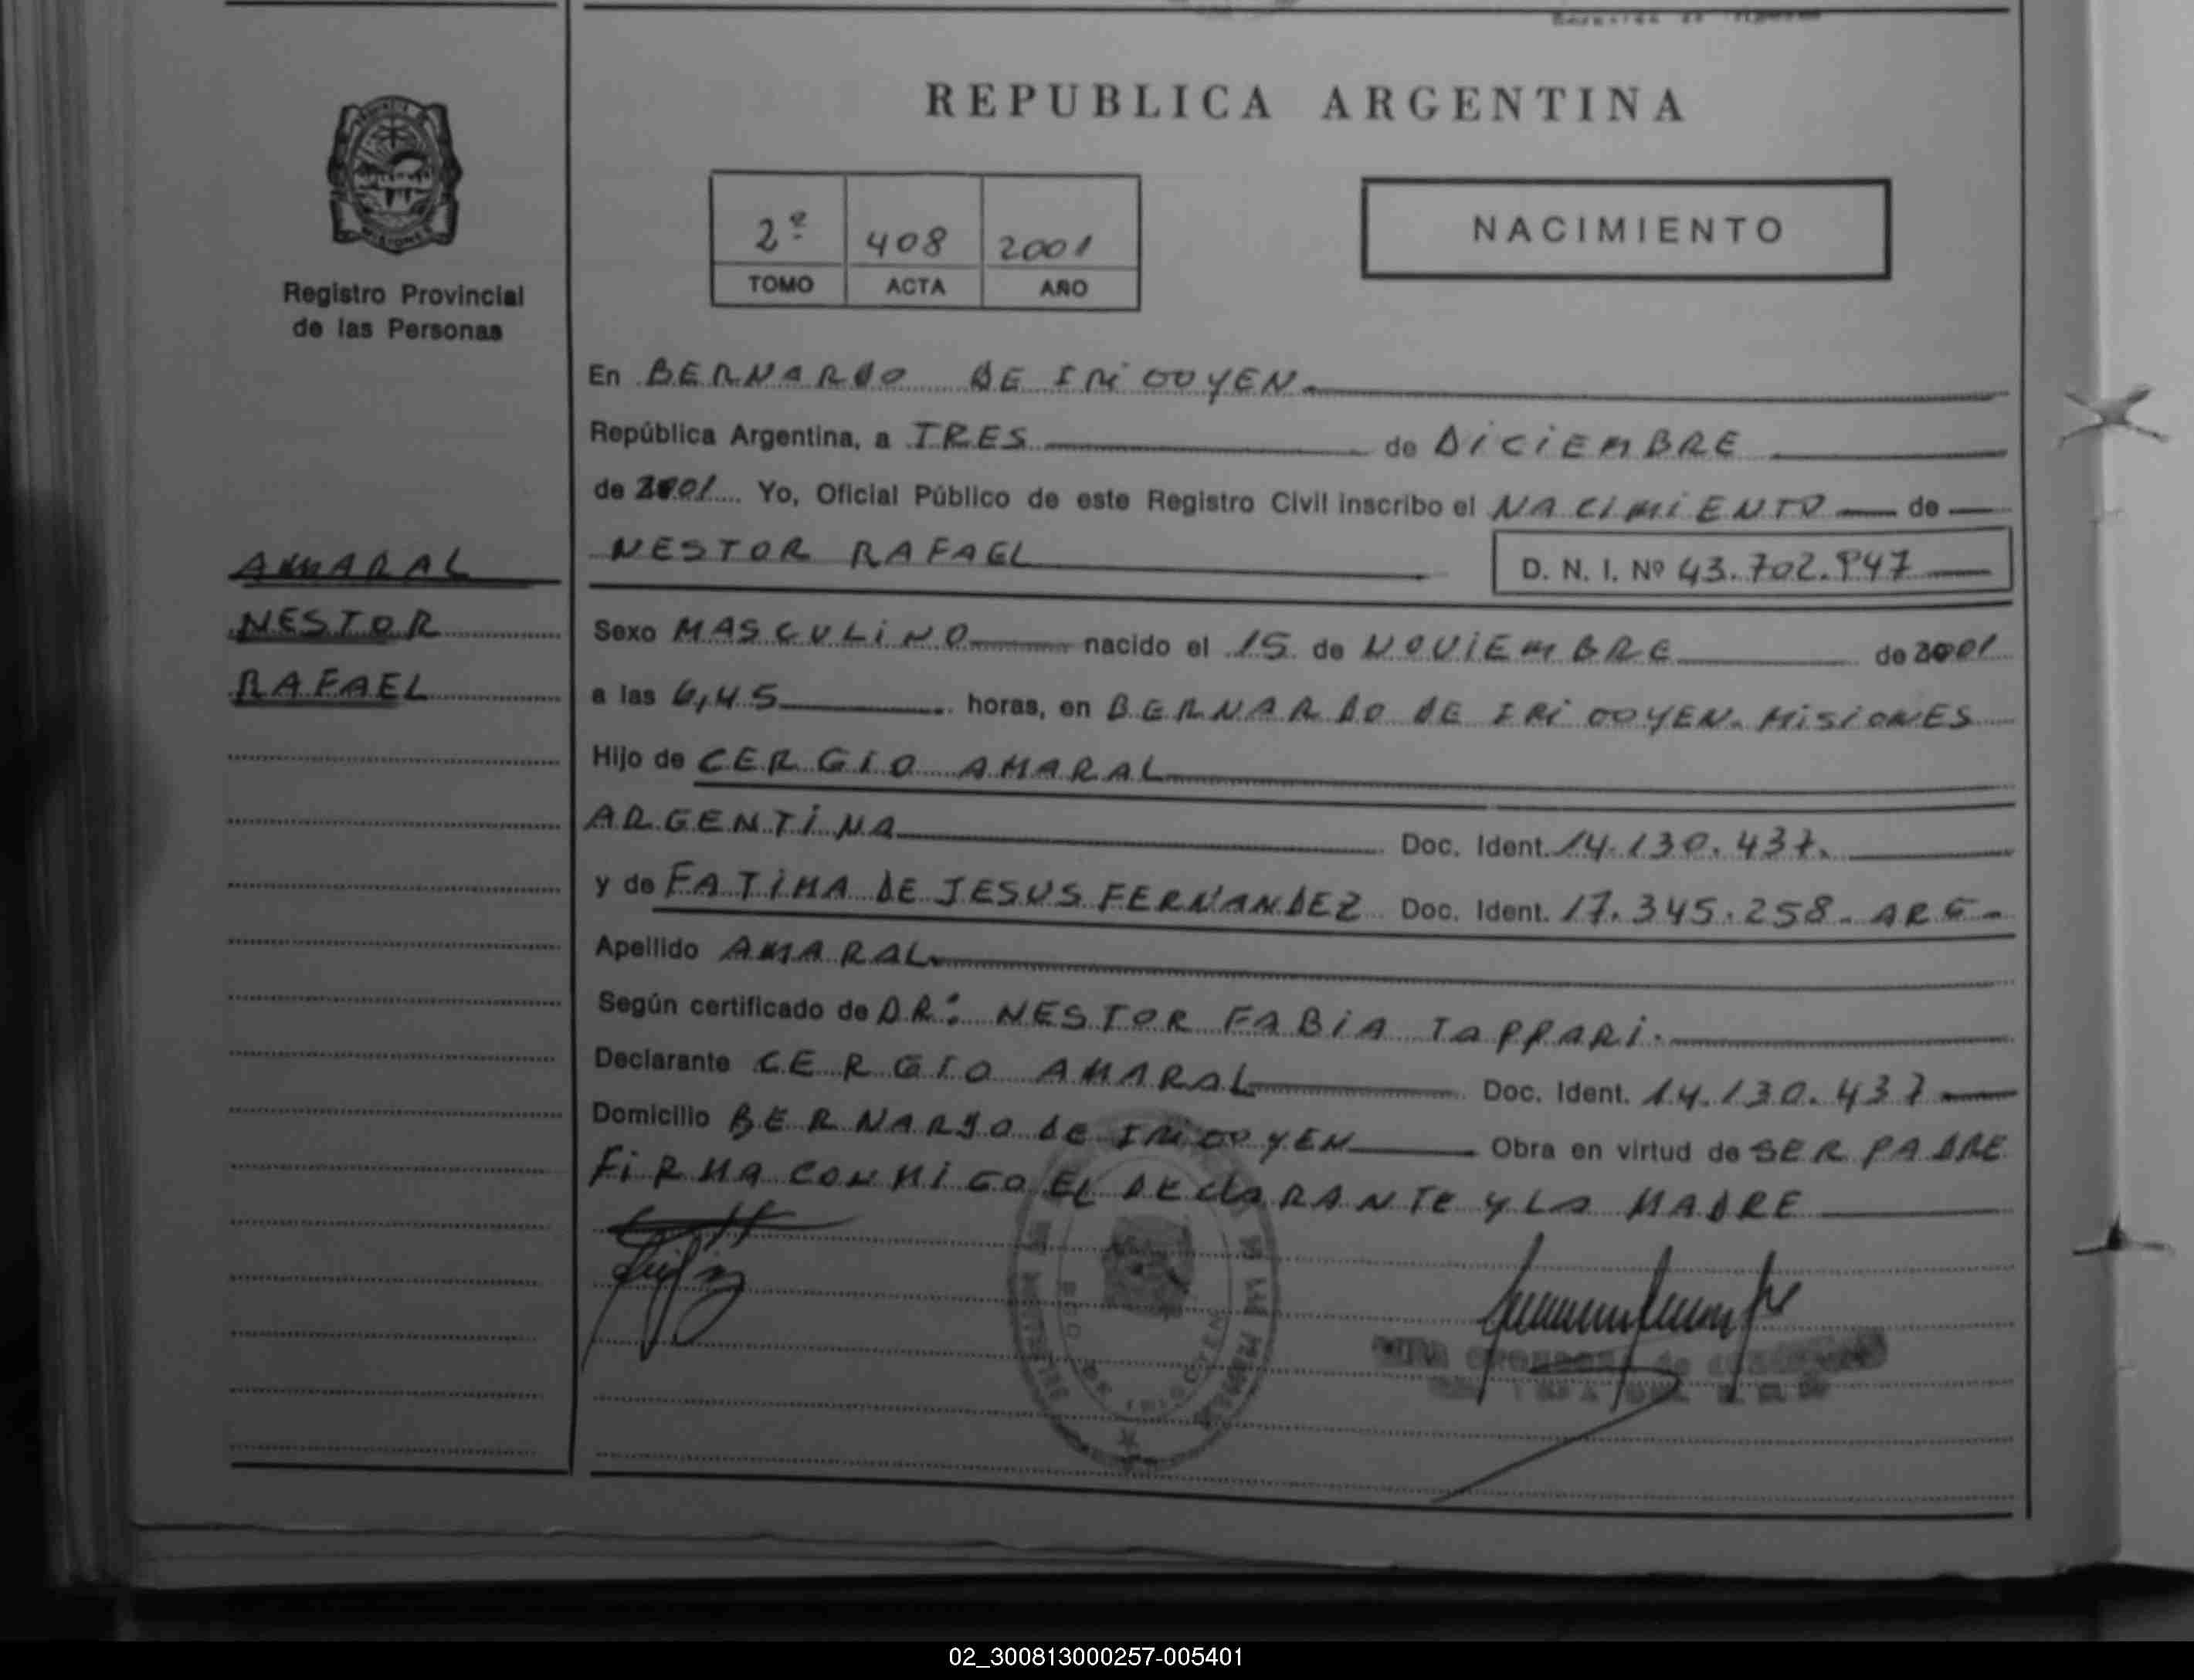 REPUBLICA ARGENTINA
2º 408 2001
TOMO ACTA AÑO
NACIMIENTO
MISIONES
Registro Provincial
de las Personas
AMARAL
NESTOR
RAFAEL
En BERNARDO DE IRIGOYEN
República Argentina, a TRES de DICIEMBRE
de 2001 Yo, Oficial Público de este Registro Civil inscribo el NACIMIENTO de
NESTOR RAFAEL D. N. I. Nº 43.702.947
Sexo MASCULINO nacido el 15 de NOVIEMBRE de 2001
a las 6,45 horas, en BERNARDO DE IRIGOYEN. MISIONES
Hijo de CERGIO AMARAL
ARGENTINA Doc. Ident. 14.130.437.
y de FATIMA DE JESUS FERNANDEZ Doc. Ident. 17.345.258. ARG.
Apellido AMARAL
Según certificado de DR: NESTOR FABIA TAPPARI.
Declarante CERGIO AMARAL Doc. Ident. 14.130.437
Domicilio BERNARDO DE IRIGOYEN Obra en virtud de SER PADRE
FIRMA CONMIGO EL DECLARANTE Y LA MADRE
02_300813000257-005401